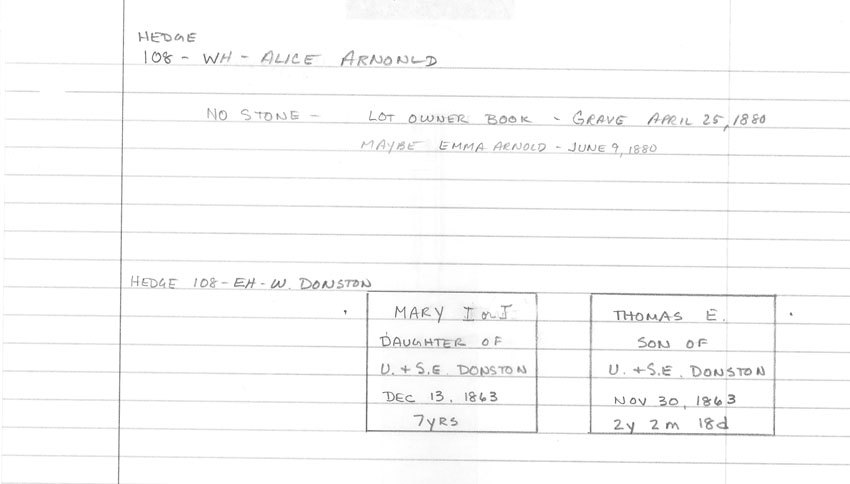 HEDGE
108 - WH - ALICE ARNONLD
NO STONE - LOT OWNER BOOK - GRAVE APRIL 25, 1880
MAYBE EMMA ARNOLD - JUNE 9, 1880
HEDGE 108 - EH - W. DONSTON
MARY I or J
DAUGHTER OF
U. + S.E. DONSTON
DEC 13, 1863
7 YRS
THOMAS E.
SON OF
U. + S.E. DONSTON
NOV 30, 1863
2y 2m 18d